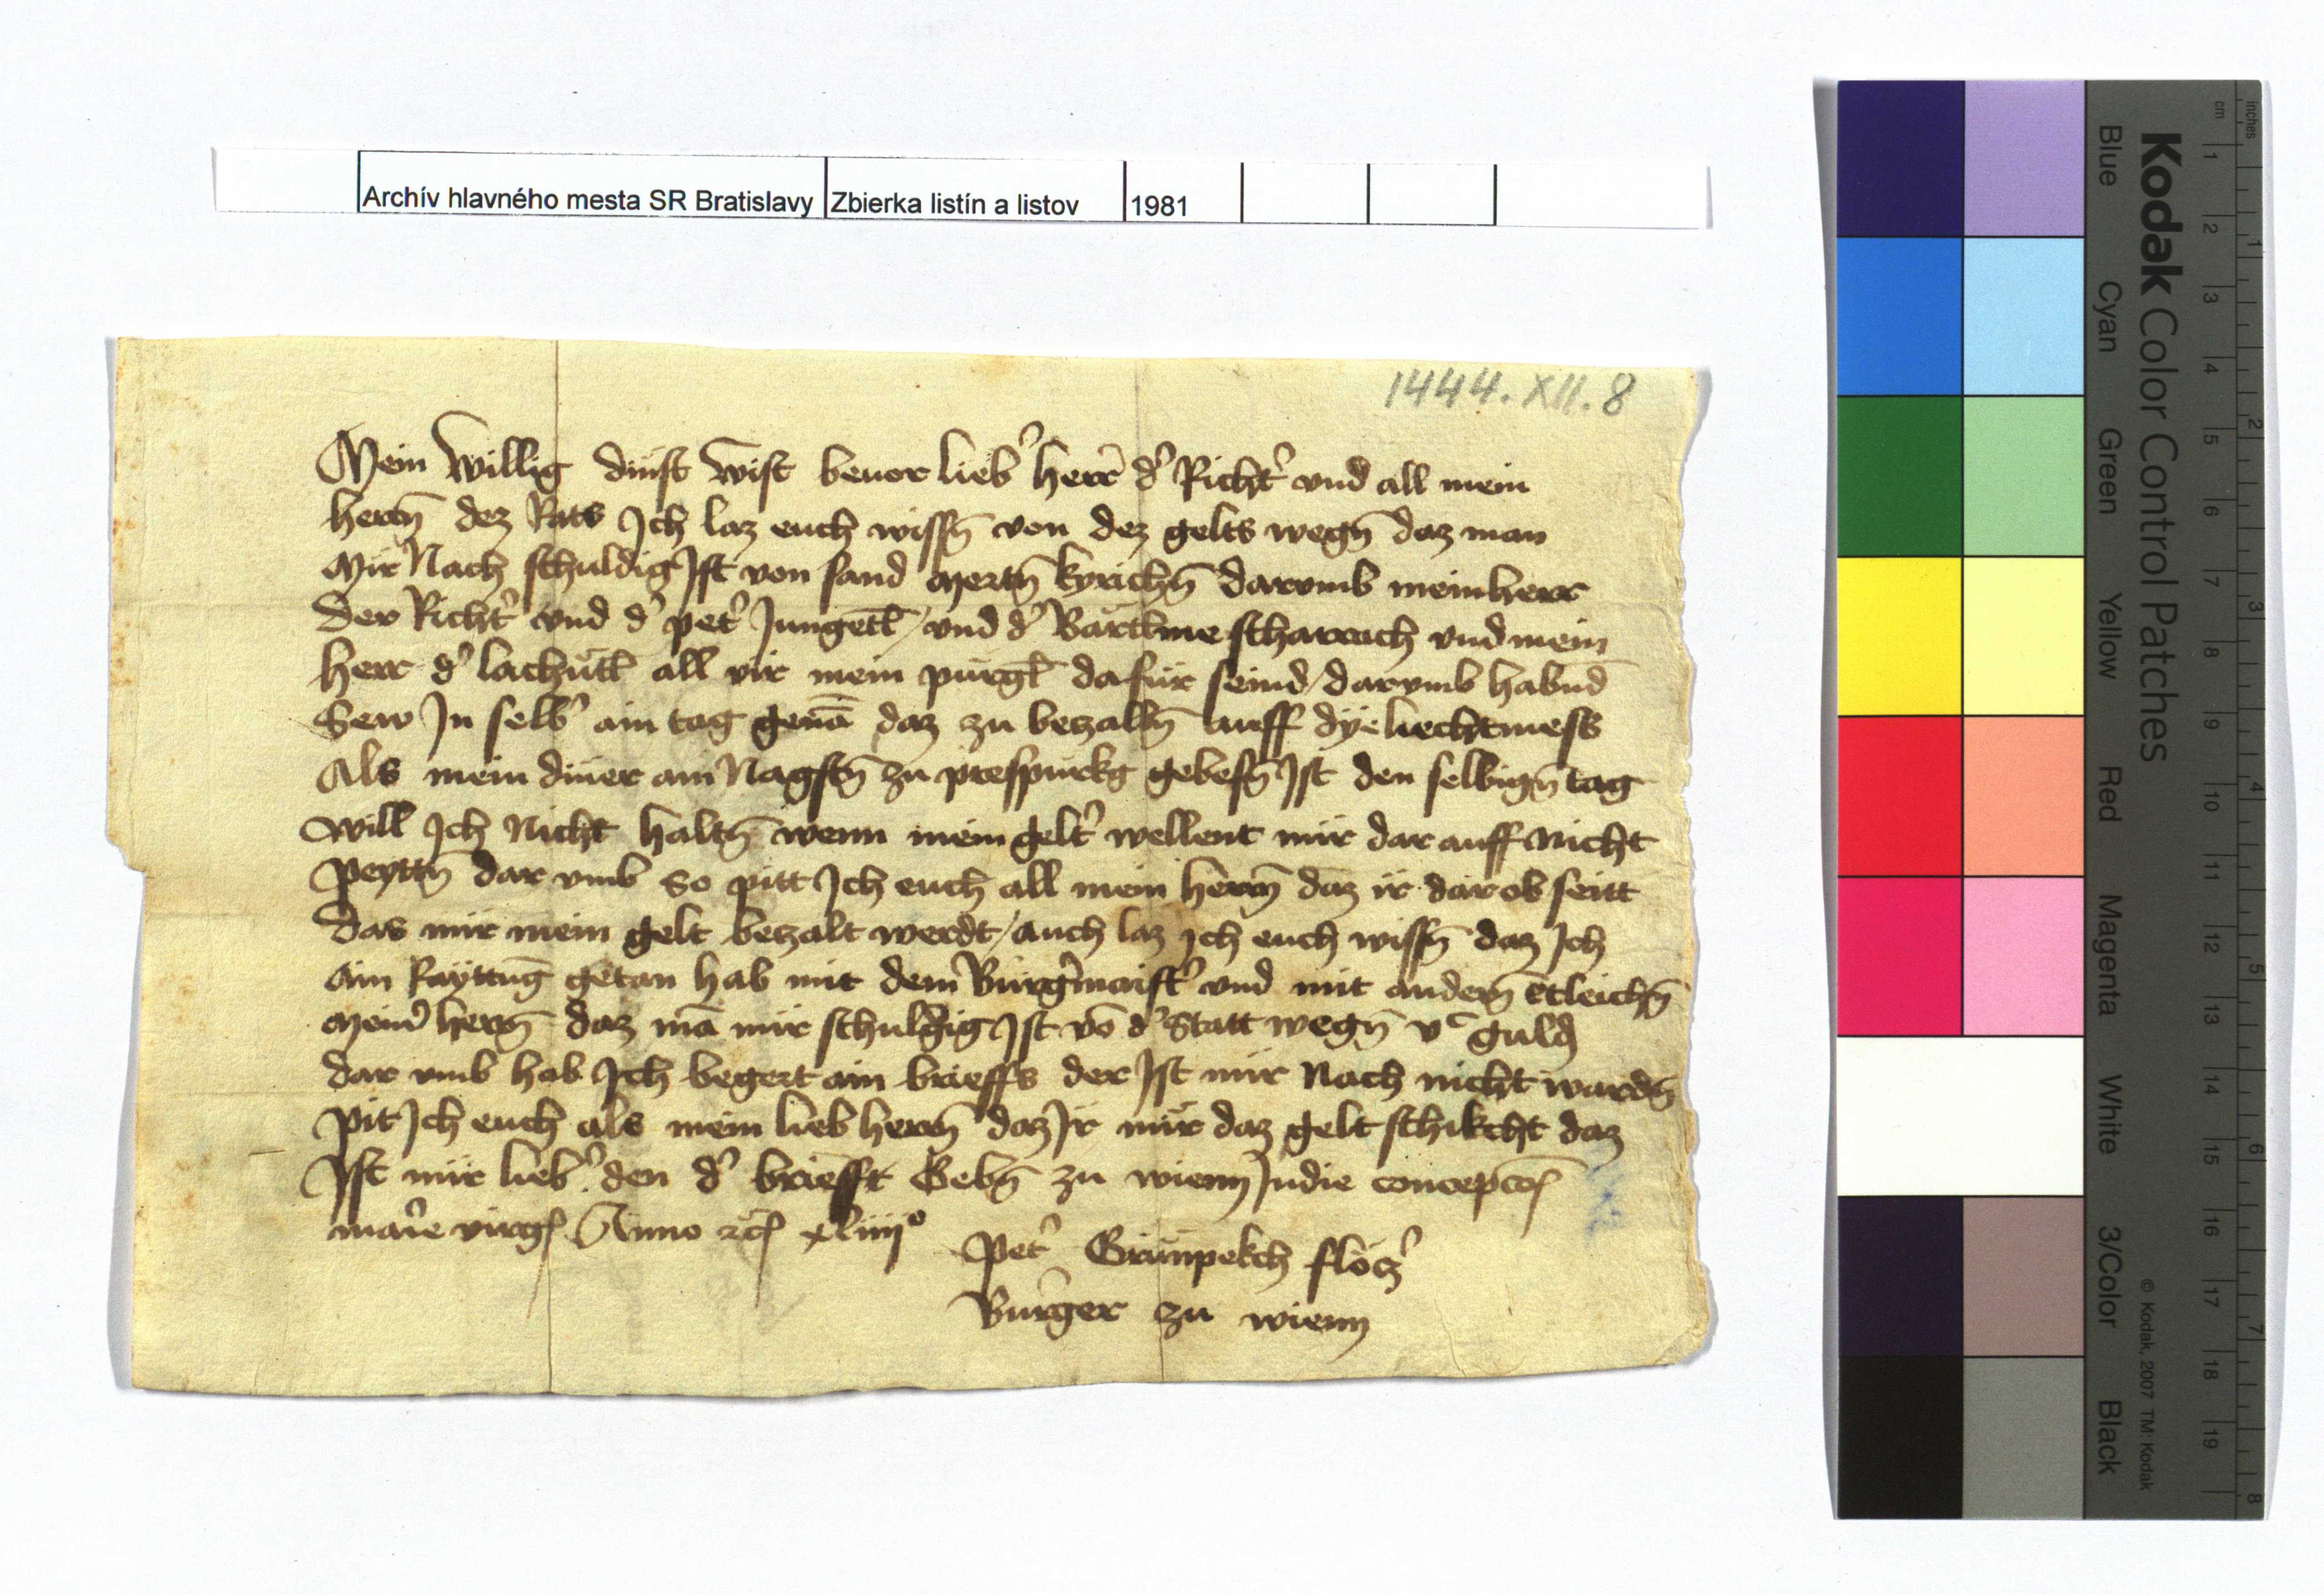 Archív hlavného mesta SR Bratislavy Zbierka listín a listov 1981
1444. XII. 8
Mein willig dinst wist beuor lieb' herr d' Richt' vnd all mein
herrn̄ dez Rats Ich laz euch wissn̄ von dez gelts wegn̄ daz man
mir Nach schuldig Ist von sand mertn̄ kyrichn̄ darvmb mein herr
Der Richt' vnd d' pet' Jungetl / vnd d' Bartlme scharrach vnd mein
herr d' lachütl all vir mein pürgl dafür seind / darvmb habnd
Sew In selb' ain tag genā daz zu betzalln̄ auff dÿe liechtmess
Als mein diner am Nagstn̄ zu prespurkg gebesn̄ Ist den selbign̄ tag
will Ich Nicht haltn̄ wenn mein gelt' wellent mir dar auff nicht
peyttn̄ dar vmb so pitt Ich euch all mein herrn̄ daz ir dar ob seitt
das mir mein gelt betzalt werdt / auch laz ich euch wissn̄ daz Ich
ain Rayttūg getan hab mit dem Burg'maist' vnd mit andern̄ etleichn̄
mein' herrn̄ daz mā mir schuldig Ist vō d' Statt wegn̄ vc guld
dar vmb hab Ich begert ain brieffs der Ist mir Nach nicht wardn̄
pit Ich euch als mein lieb herrn̄ daz Ir mir daz gelt schikcht daz
Ist mir lieb' den d' brieff Gebn̄ zu wienn In die concepcōis
marie virgis Anno etc xliiiio
Pet' Grünpekch flötz'
Burger zu wienn
Kodak Color Control Patches
Blue Cyan Green Yellow Red Magenta White 3/Color Black
© Kodak, 2007 TM: Kodak
cm 1 2 3 4 5 6 7 8 9 10 11 12 13 14 15 16 17 18 19
inches 1 2 3 4 5 6 7 8